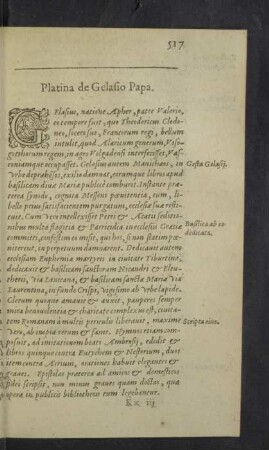 517
Platina de Gelasio Papa.
GElasius, natione Apher, patre Valerio,
eo tempore fuit, quo Theodoricus Clodo-
neo, socero suo, Francorum regi, bellum
intulit, quod Alaricum generum, Visi-
gothorum regem, in agro Volgadensi interfecisset, Vas-
coniamque occupasset. Gelasius autem Manichæos, in
Gesta Gelasij.
Vrbe deprehensos, exilio damnat, eorumque libros apud
basilicam diuæ Mariæ publicè comburit. Instante præ-
terea synodo, cognita Messeni pœnitentia, cum,
libello prius satisfacientem purgatum, ecclesiæ suæ resti-
tuit. Cum verò intellexisset Petri & Acatij seditio-
nibus multa flagitia & Parricidia in ecclesijs Græciæ
committi, confestim eò misit, qui hos, si non statim pœ-
niterent, in perpetuum damnarent. Dedicauit autem
Basilica ab eo
dedicata.
ecclesiam Euphemiæ martyris in ciuitate Tiburtina,
dedicauit & basilicam sanctorum Nicandri & Eleu-
therij, via Lauicana, & basilicam sanctæ Mariæ via
Laurentina, in fundo Crispi, vigesimo ab vrbe lapide.
Clerum quoque amauit & auxit, pauperes semper
mira beneuolentia & charitate complexus est, ciuita-
tem Romanam à multis periculis liberauit, maximè
Scripta eius.
vero, ab impia rerum & fame. Hymnos etiam com-
posuit, ad imitationem beati Ambrosij, edidit &
libros quinque contra Eutychem & Nestorium, duos
item contra Arrium, orationes habuit elegantes &
graues. Epistolas præterea ad amicos & domesticos
fidei scripsit, non minus graues quàm doctas, quæ
opera in publicis bibliothecis tum legebantur.
Kk iij